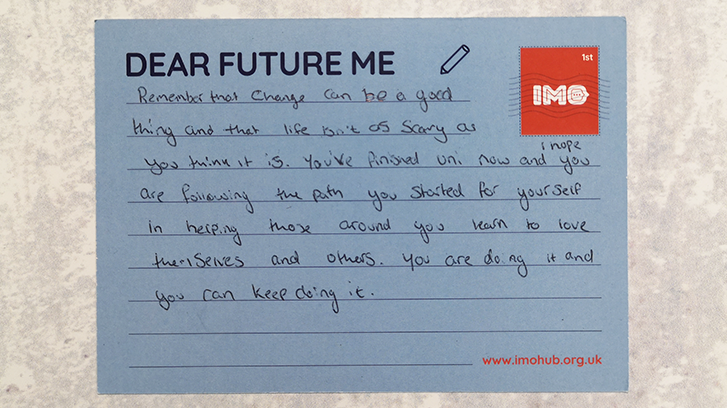 DEAR FUTURE ME
1st
IMO
Remember that Change can be a good
thing and that life isn't as scary as
i hope
you think it is. You've finished uni. now and you
are following the path you started for yourself
in helping those around you learn to love
themselves and others. You are doing it and
you can keep doing it.
www.imohub.org.uk